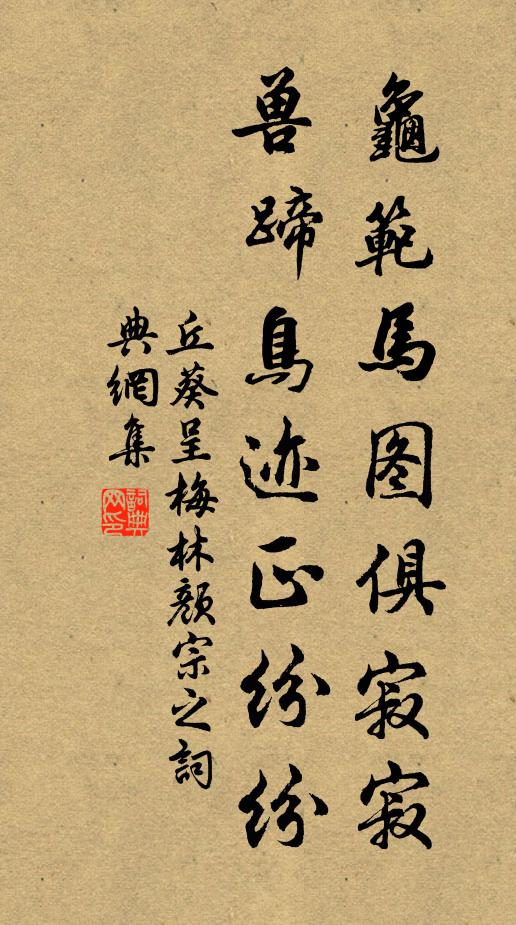 龜範馬图俱寂寂
兽蹄鳥迹正紛紛
丘葵呈梅林顏宗之詞
典網集
詞典網印